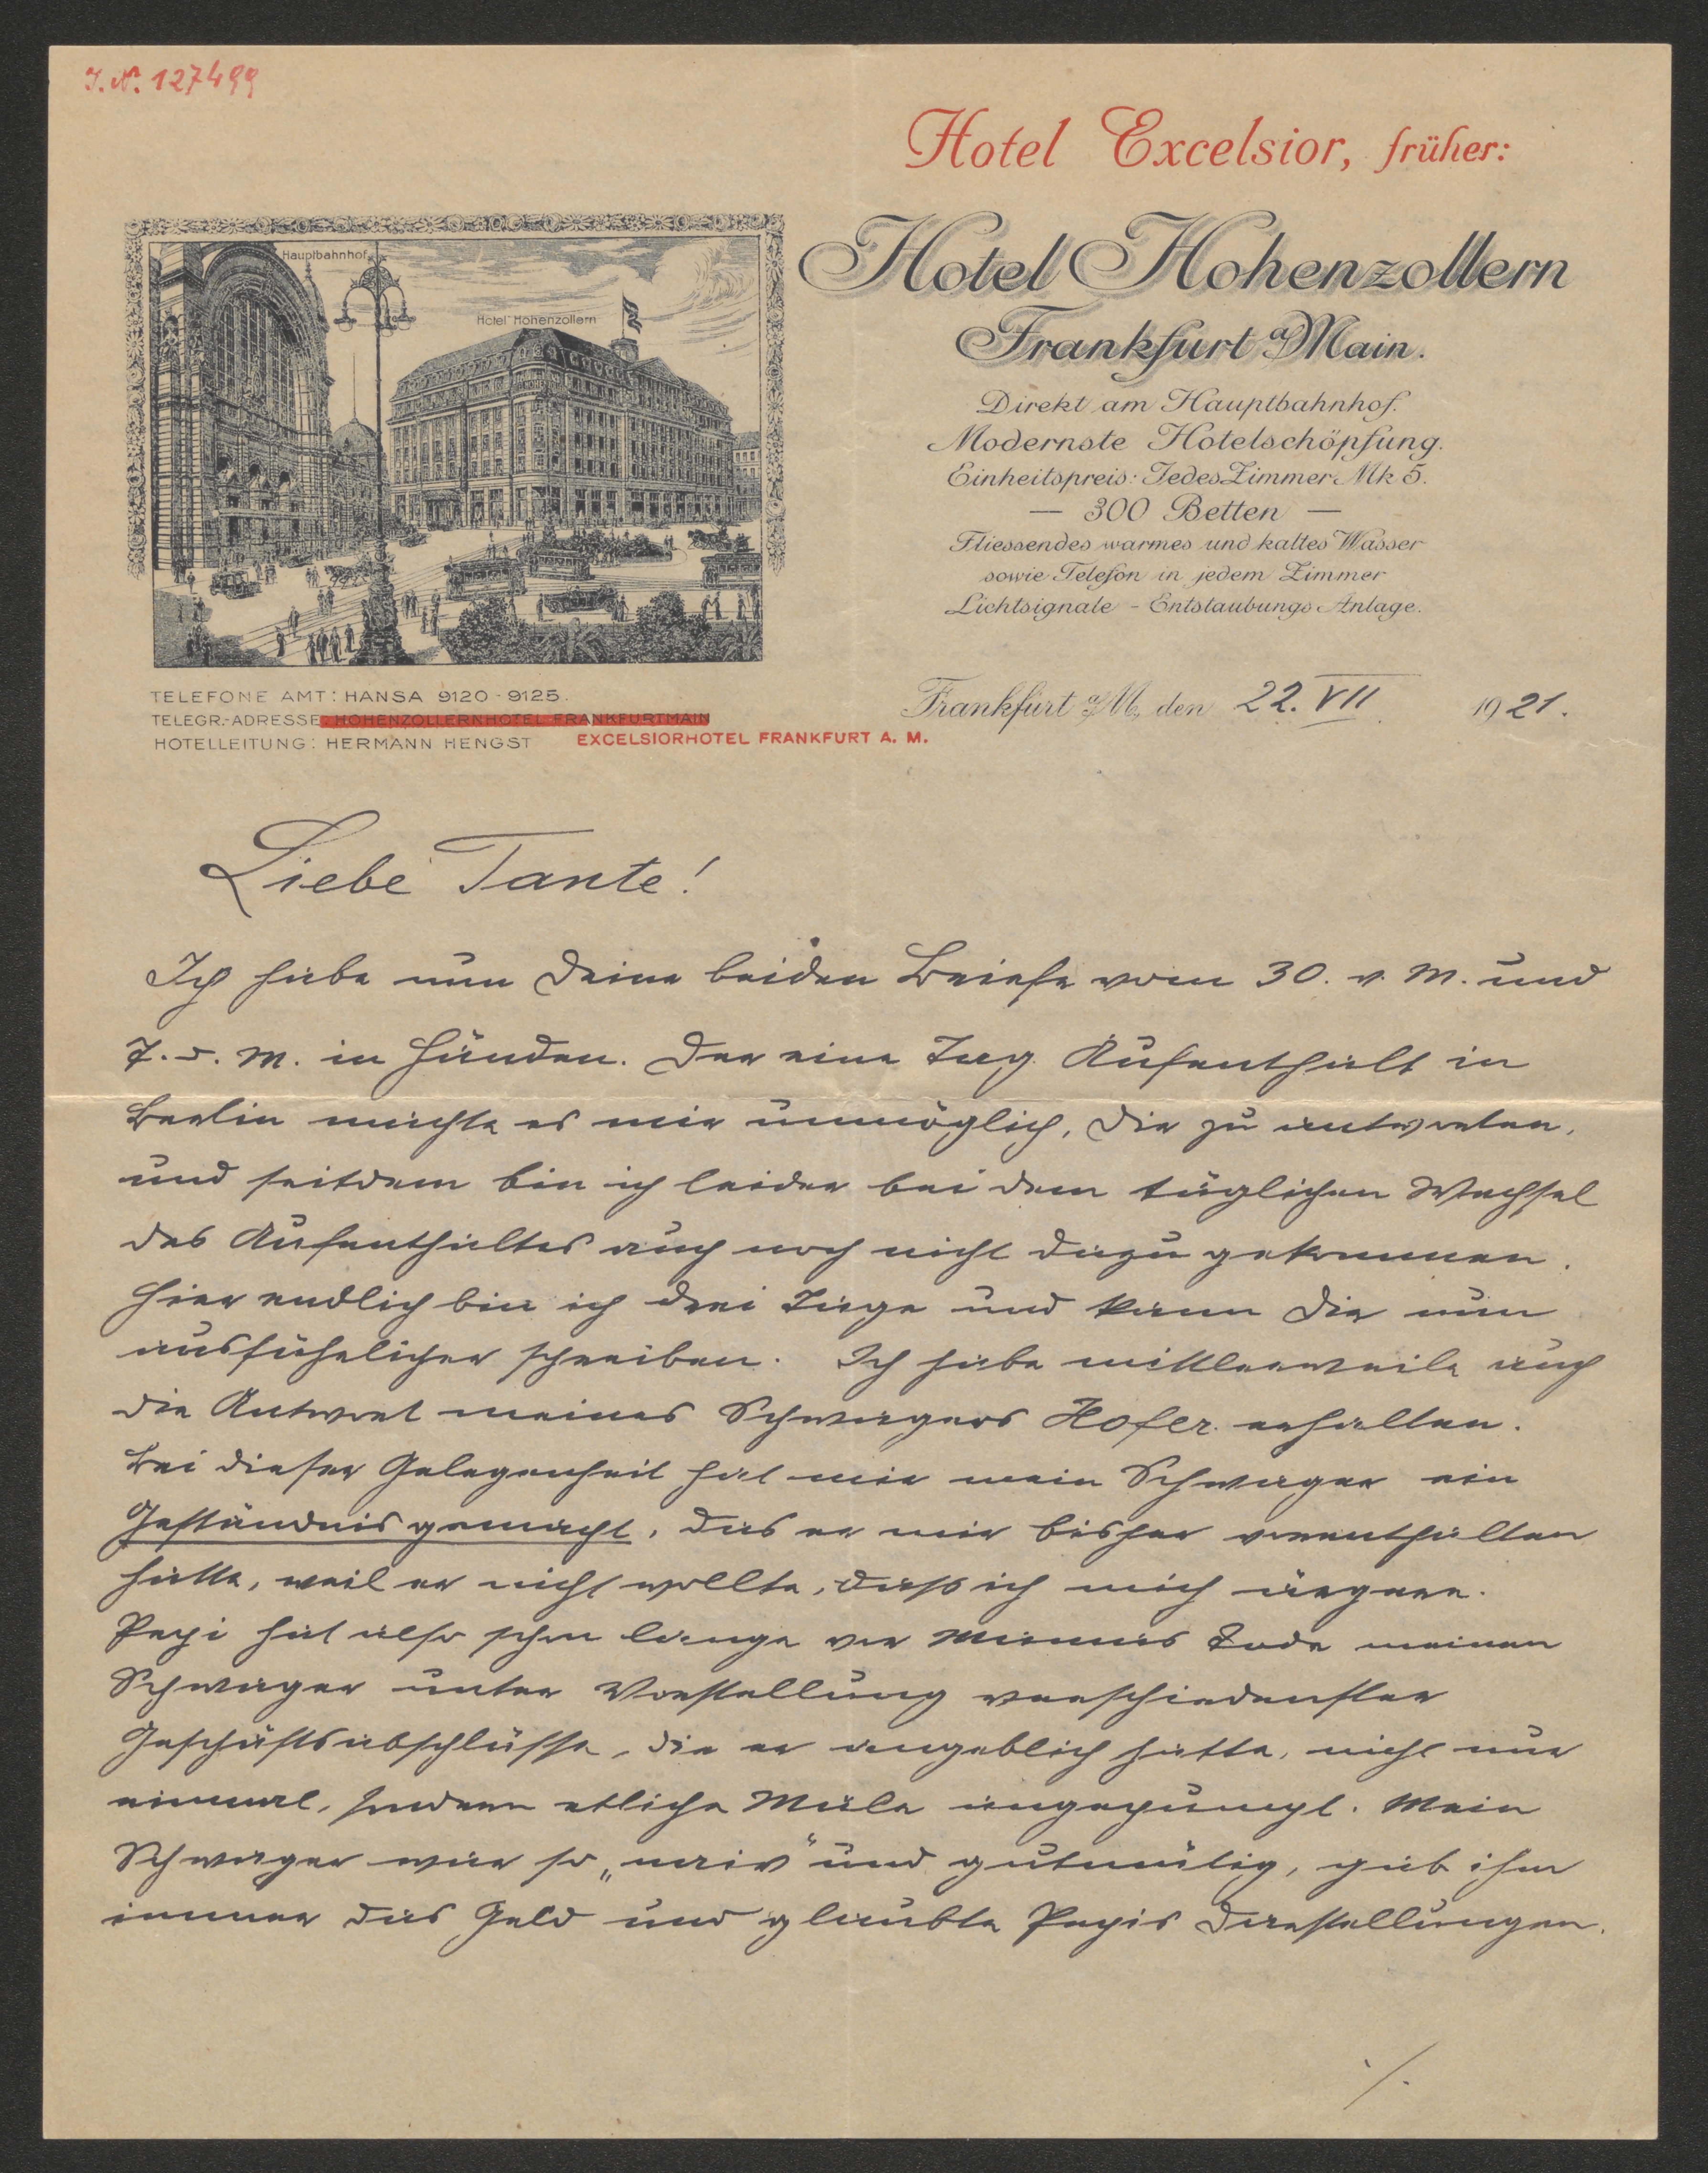 J. N. 127499
Hotel Excelsior, früher:
Hotel Hohenzollern
Frankfurt a/Main.
Direkt am Hauptbahnhof.
Modernste Hotelschöpfung.
Einheitspreis: Jedes Zimmer Mk 5.
— 300 Betten —
Fliessendes warmes und kaltes Wasser
sowie Telefon in jedem Zimmer
Lichtsignale - Entstaubungs Anlage.
Hauptbahnhof
Hotel Hohenzollern
TELEFONE AMT: HANSA 9120 - 9125.
TELEGR.-ADRESSE: HOHENZOLLERNHOTEL FRANKFURTMAIN
HOTELLEITUNG: HERMANN HENGST EXCELSIORHOTEL FRANKFURT A. M.
Frankfurt a/M., den 22. VII 1921.
Liebe Tante!
Ich habe nun Deine beiden Briefe vom 30. v. M. und
7. d. M. in Händen. Der eine Tag Aufenthalt in
Berlin machte es mir unmöglich, Dir zu antworten,
und seitdem bin ich leider bei dem täglichen Wechsel
des Aufenthaltes auch noch nicht dazu gekommen.
Hier endlich bin ich drei Tage und kann Dir nun
ausführlicher schreiben. Ich habe mittlerweile auch
die Antwort meines Schwagers Hofer erhalten.
Bei dieser Gelegenheit hat mir mein Schwager ein
Geständnis gemacht, das er mir bisher vorenthalten
hatte, weil er nicht wollte, dass ich mich ärgere.
Pepi hat also schon lange vor Mamas Tode meinen
Schwager unter Vorstellung verschiedenster
Geschäftsabschlüsse, die er angeblich hatte, nicht nur
einmal, sondern etliche Male angepumpt. Mein
Schwager war so „naiv" und gutmütig, gab ihm
immer das Geld und glaubte Pepis Darstellungen.
./.